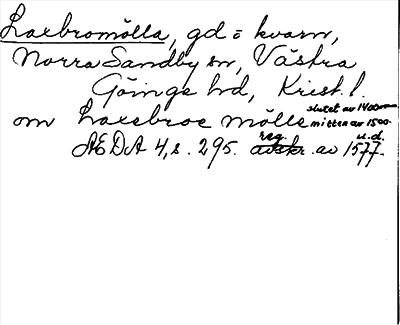 Laxbromölla, gd = kvarn,
Norra Sandby sn, Västra
Göinge hd, Krist. l.
slutet av 1400
om Laxebroe mölle mitten av 1500
reg. u.d.
ÆDA 4, s. 295. avskr. av 1577.